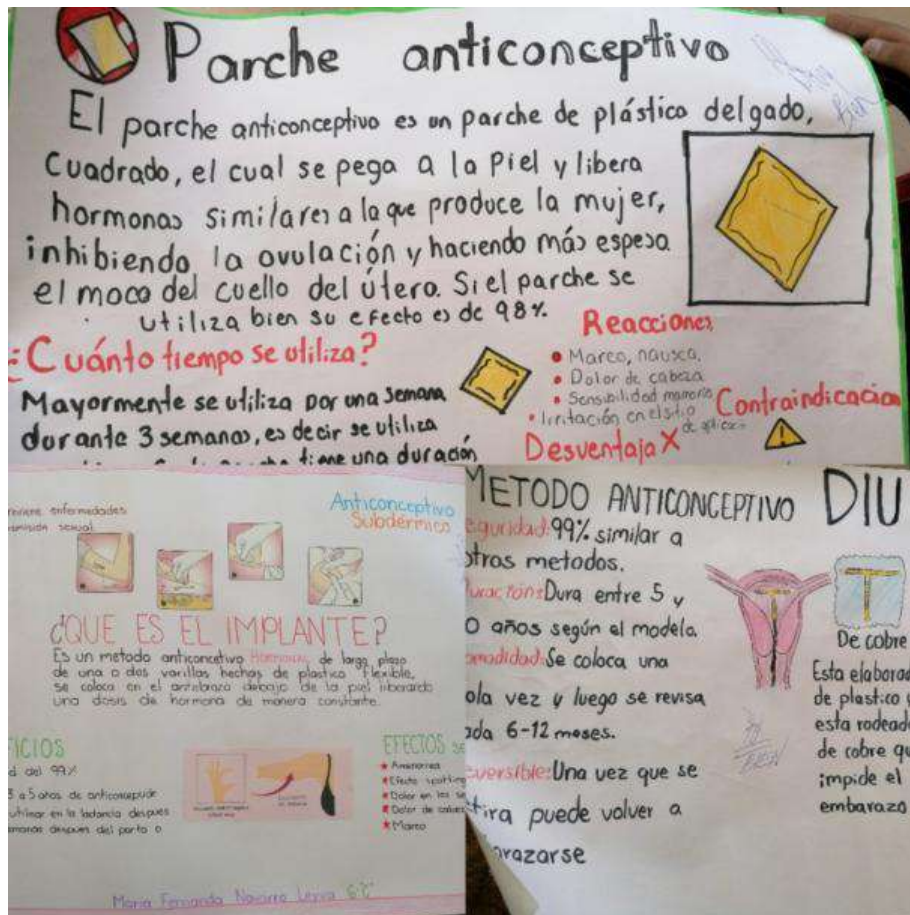 Parche anticonceptivo
El parche anticonceptivo es un parche de plástico delgado,
Cuadrado, el cual se pega a la Piel y libera
hormonas similares a la que produce la mujer,
inhibiendo la ovulación y haciendo más espesa
el moco del cuello del útero. Si el parche se
utiliza bien su efecto es de 98%
¿Cuánto tiempo se utiliza?
Mayormente se utiliza por una semana
durante 3 semanas, es decir se utiliza
tiene una duración
Reacciones
Mareo, nausea,
Dolor de cabeza
Sensibilidad mamaria
Irritación en el sitio
de aplicación
Contraindicacion
Desventaja X
enfermedades
sexual
Anticonceptivo
Subdérmico
¿QUE ES EL IMPLANTE?
Es un metodo anticoncetivo Hormonal de largo plazo
de una o dos varillas hechas de plastico flexible,
se coloca en el antebrazo debajo de la piel liberando
una dosis de hormona de manera constante.
FICIOS
d del 99%
3 a 5 años de anticoncepción
utilizar en la lactancia despues
despues del parto o
EFECTOS se
Amenorrea
Efecto spotting
Dolor en los se
Dolor de cabeza
Mareo
Maria Fernanda Navarro
METODO ANTICONCEPTIVO DIU
eguridad: 99% similar a
otros metodos.
uración: Dura entre 5 y
0 años según el modelo.
omodidad: Se coloca una
ola vez y luego se revisa
ada 6-12 meses.
eversible: Una vez que se
tira puede volver a
barazarse
De cobre
Esta elaborad
de plastico y
esta rodead
de cobre qu
impide el
embarazo